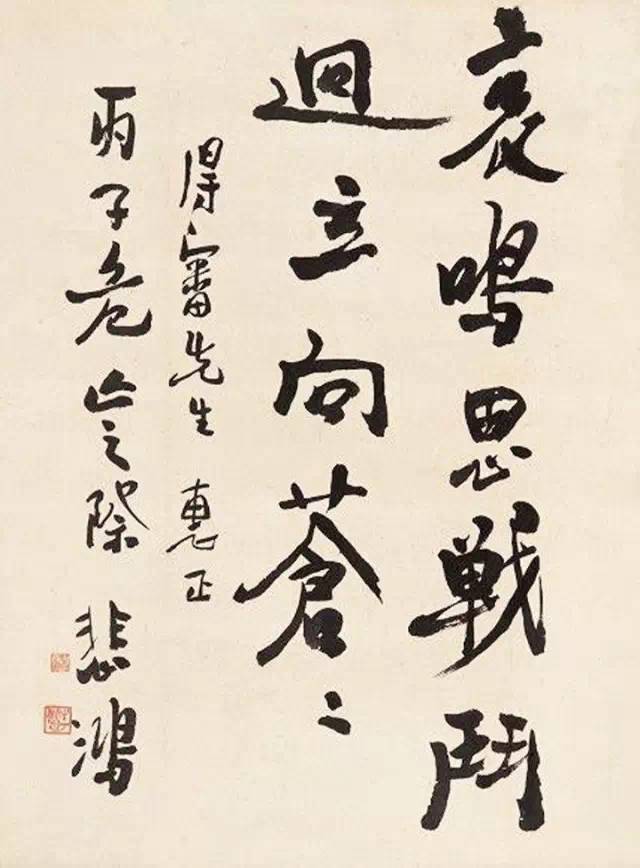 哀鳴思戰鬥
逈立向蒼〻
得審先生 惠正
丙子危亡之際 悲鴻